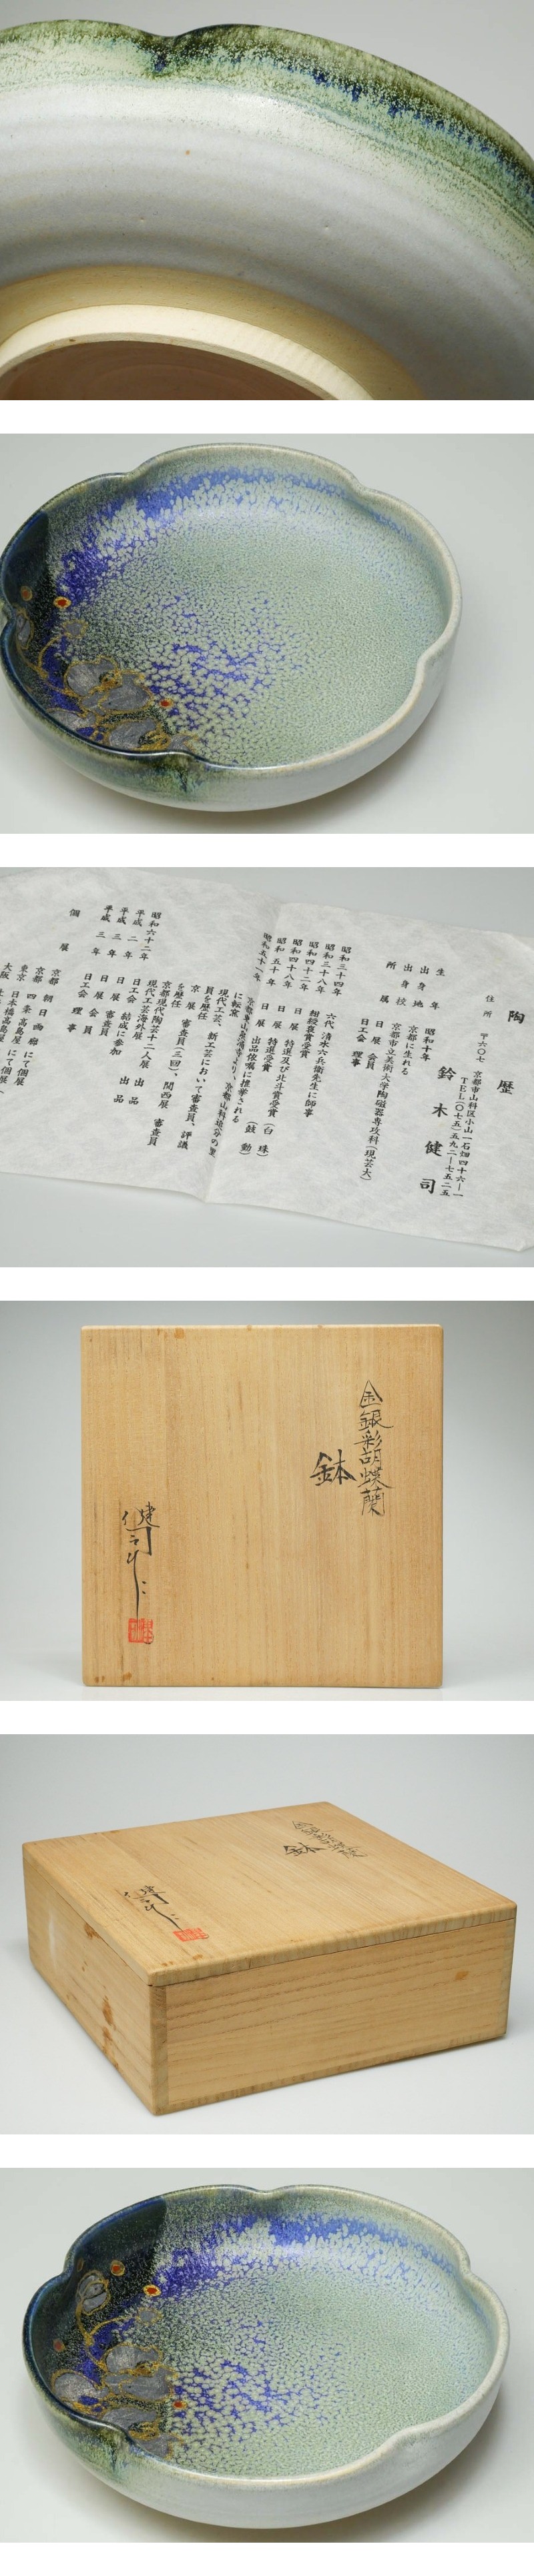 陶歴
住所 〒六〇七 京都市山科区小山一石畑四十六ー一
TEL(〇七五)五九二ー七五二五
鈴木健司
生年 昭和十年
出身地 京都に生れる
出身校 京都市立美術大学陶磁器専攻科(現芸大)
所属 日展 会員
日工会 理事
昭和三十四年 六代 清水六兵衛先生に師事
昭和三十八年 紺綬褒賞受賞
昭和四十二年 日展 特選及び北斗賞受賞 (白珠)
昭和四十八年 日展 特選受賞 (鼓動)
昭和五十年 日展 出品依嘱に推挙される
昭和五十一年
に転窯
現代工芸、新工芸において審査員、評議
員を歴任
京展 審査員(三回)、関西展 審査員
を歴任
昭和六十二年 京都現代陶芸十二人展 出品
平成二年 現代工芸海外展 出品
平成三年 日工会 結成に参加
平成三年 日展 審査員
日展 会員
日工会 理事
個展
京都 朝日画廊 にて個展
京都 四条高島屋 にて個展
東京 日本橋高島屋 にて個展
大阪
金銀彩胡蝶蘭
鉢
健司
金銀彩胡蝶蘭
鉢
健司